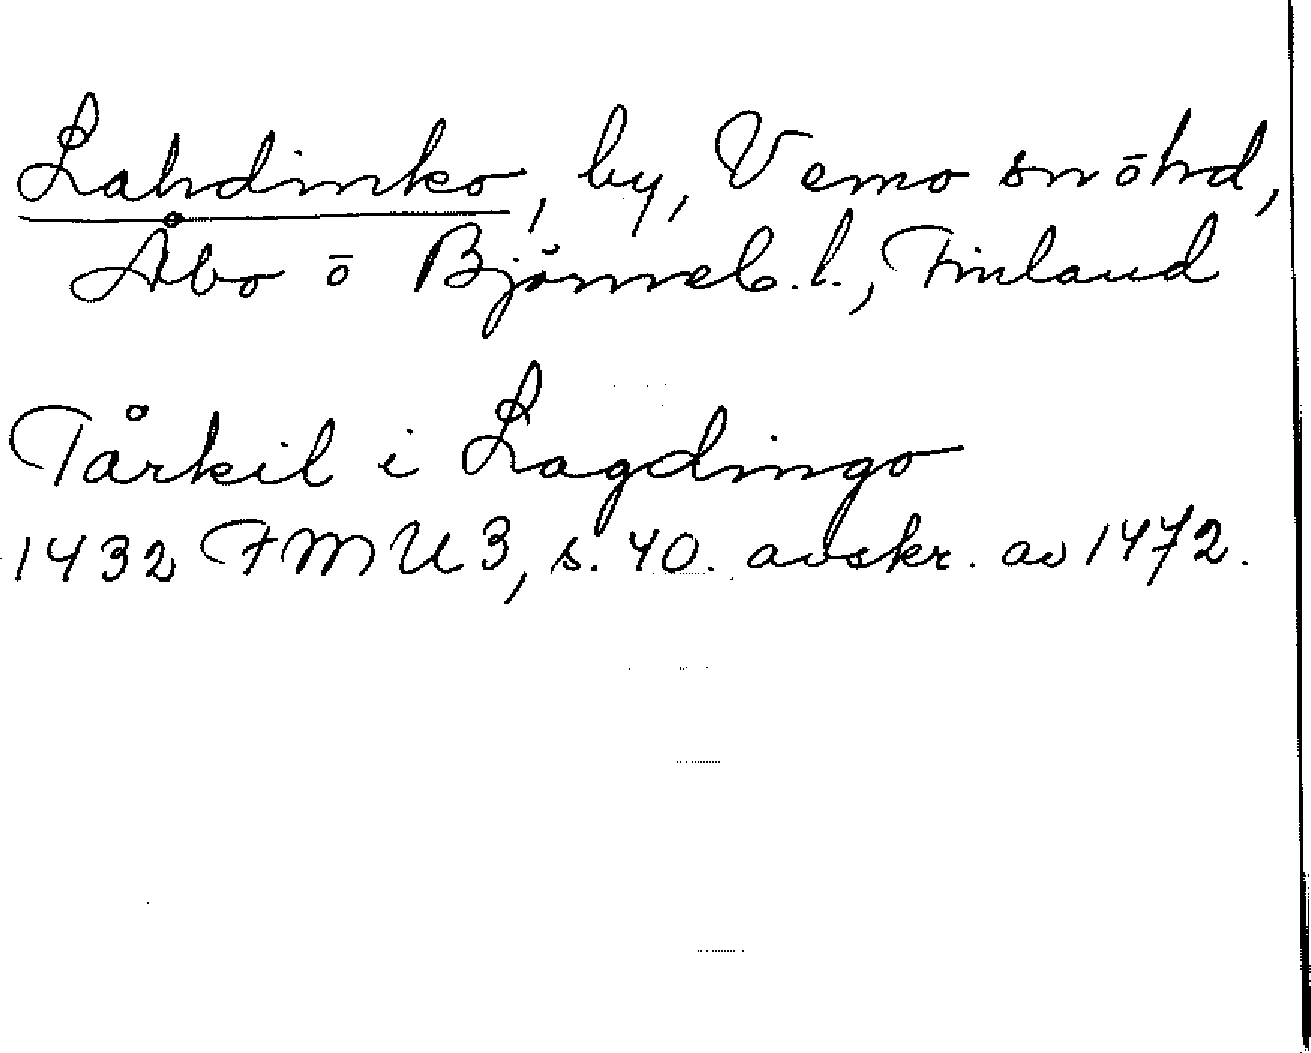 Lahdinko, by, Vemo sn ō hd,
Åbo ō Björneb. l., Finland
Tårkil i Lagdingo
1432 FMU 3, s. 40. avskr. av 1472.